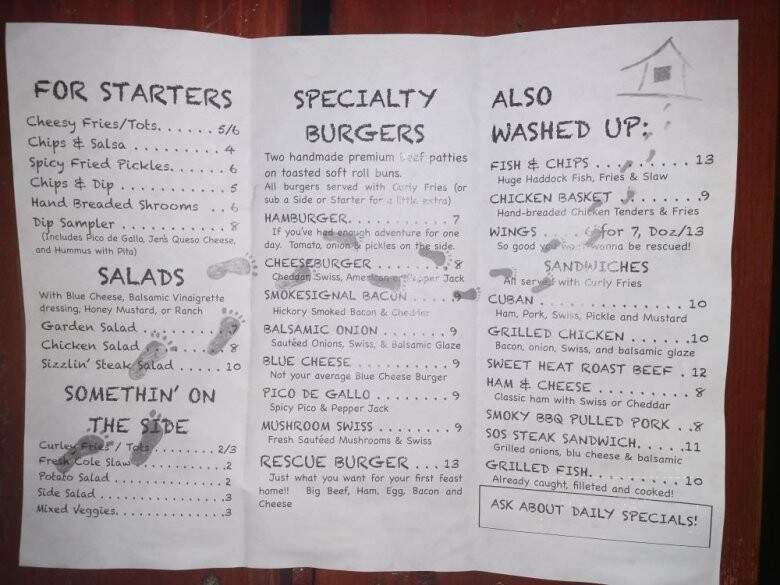 FOR STARTERS
Cheesy Fries/Tots. . . . . . 5/6
Chips & Salsa . . . . . . . . . . 4
Spicy Fried Pickles. . . . . . . 6
Chips & Dip . . . . . . . . . . . 5
Hand Breaded Shrooms . . 6
Dip Sampler . . . . . . . . . . . 8
(Includes Pico de Gallo, Jen's Queso Cheese,
and Hummus with Pita)
SALADS
With Blue Cheese, Balsamic Vinaigrette
dressing, Honey Mustard, or Ranch
Garden Salad . . . . . . . . . 7
Chicken Salad . . . . . . . . 8
Sizzlin' Steak Salad . . . . . 10
SOMETHIN' ON
THE SIDE
Curley Fries / Tots . . . . . . . . 2/3
Fresh Cole Slaw . . . . . . . . . . .2
Potato Salad . . . . . . . . . . . . 2
Side Salad . . . . . . . . . . . . . .3
Mixed Veggies. . . . . . . . . . . .3
SPECIALTY
BURGERS
Two handmade premium beef patties
on toasted soft roll buns.
All burgers served with Curly Fries (or
sub a Side or Starter for a little extra)
HAMBURGER. . . . . . . . . . . 7
If you've had enough adventure for one
day. Tomato, onion & pickles on the side.
CHEESEBURGER . . . . . . . . 8
Cheddar, Swiss, American or Pepper Jack
SMOKESIGNAL BACUN . . . . 9
Hickory Smoked Bacon & Cheddar
BALSAMIC ONION . . . . . . . 9
Sautéed Onions, Swiss, & Balsamic Glaze
BLUE CHEESE . . . . . . . . . . 9
Not your average Blue Cheese Burger
PICO DE GALLO . . . . . . . . . 9
Spicy Pico & Pepper Jack
MUSHROOM SWISS . . . . . . . 9
Fresh Sautéed Mushrooms & Swiss
RESCUE BURGER . . . 13
Just what you want for your first feast
home!! Big Beef, Ham, Egg, Bacon and
Cheese
ALSO
WASHED UP:
FISH & CHIPS . . . . . . . . . 13
Huge Haddock Fish, Fries & Slaw
CHICKEN BASKET . . . . . . . .9
Hand-breaded Chicken Tenders & Fries
WINGS . . . . 6 for 7, Doz/13
So good you won't wanna be rescued!
SANDWICHES
All served with Curly Fries
CUBAN . . . . . . . . . . . . . . 10
Ham, Pork, Swiss, Pickle and Mustard
GRILLED CHICKEN . . . . . . .10
Bacon, onion, Swiss, and balsamic glaze
SWEET HEAT ROAST BEEF . 12
HAM & CHEESE . . . . . . . . . 8
Classic ham with Swiss or Cheddar
SMOKY BBQ PULLED PORK . .8
SOS STEAK SANDWICH. . . . .11
Grilled onions, blu cheese & balsamic
GRILLED FISH. . . . . . . . . . 10
Already caught, filleted and cooked!
ASK ABOUT DAILY SPECIALS!